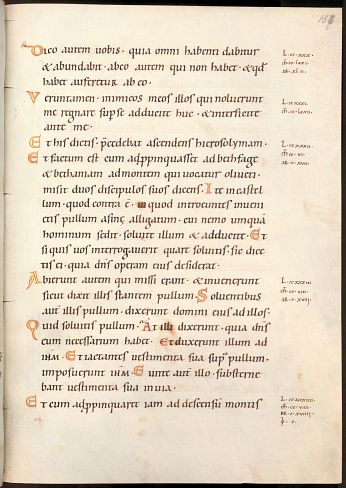 Dico autem uobis· quia omni habenti dabitur
& abundabit· abeo autem qui non habet· & qđ
habet auferetur ab eo·
Veruntamen· inimicos meos illos qui noluerunt
me regnare sup se adducite huc· & interficite
ante me·
Et his dictis· precedebat ascendens hierosolymam·
Et factum est cum adppinquasset ad bethfage
& bethaniam ad montem qui uocatur oliueti·
misit duos discipulos suos dicens· Ite in castel
lum· quod contra ē· in quod introeuntes inueni
etis pullum asinę alligatum· cui nemo umquā
hominum sedit· soluite illum & adducite· Et
si quis uos interrogauerit quare soluitis· sic dice
tis ei· quia dn̄s operam eius desiderat·
Abierunt autem qui missi erant· & inuenerunt
sicut dixit illis stantem pullum· Soluentibus
aut illis pullum· dixerunt domini eius ad illos·
Quid soluitis pullum· At illi dixerunt· quia dn̄s
eum necessarium habet· Et duxerunt illum ad
ihm̄· Et iactantes uestimenta sua sup pullum·
imposuerunt ihm̄· Eunte aut illo· substerne
bant uestimenta sua in uia·
Et cum adppinquaret iam ad descensum montis